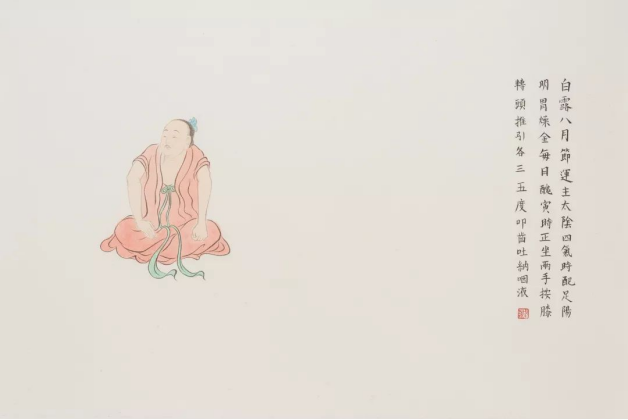 白露八月節運主太陰四氣時配足陽
明胃燥金每日醜寅時正坐兩手按膝
轉頭推引各三五度叩齒吐納咽液